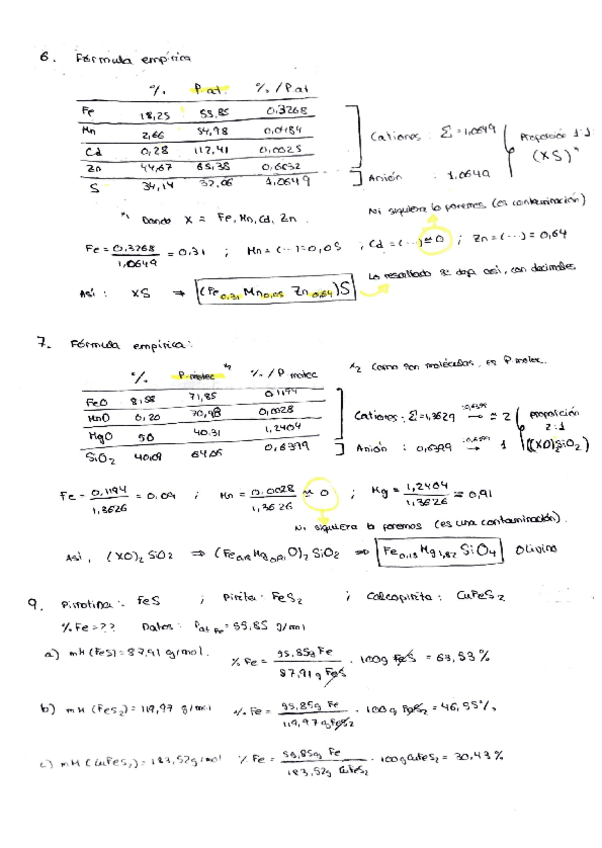 6. Fórmula empírica
% P at. % / P at
Fe 18,25 55,85 0,3268
Mn 2,66 54,98 0,0484
Cd 0,28 112,41 0,0025
Zn 44,67 65,38 0,6832
S 34,14 32,06 1,0649
Cationes : Σ = 1,0649
Anión : 1,0649
Proporción 1:1
(XS)*1
*1 Donde X = Fe, Mn, Cd, Zn.
Ni siquiera lo ponemos (es contaminación)
Fe = 0,3268 / 1,0649 = 0,31 ; Mn = (...) = 0,05 ; Cd = (...) ≈ 0 ; Zn = (...) = 0,64
Lo resaltado se deja así, con decimales
Así : XS ⇒ (Fe0,31 Mn0,05 Zn0,64)S
7. Fórmula empírica:
% P molec *2 % / P molec
*2 Como son moléculas, es P molec.
FeO 8,58 71,85 0,1194
MnO 0,20 70,98 0,0028
MgO 50 40.31 1,2404
SiO2 40,09 64,06 0,6399
Cationes : Σ = 1,3629 →:0,6399 ≈ 2
Anión : 0,6399 →:0,6399 1
proporción
2:1
((XO)2SiO2)
Fe = 0,1194 / 1,3626 = 0,09 ; Mn = 0,0028 / 1,3626 ≈ 0 ; Mg = 1,2404 / 1,3626 = 0,91
Ni siquiera lo ponemos (es una contaminación).
Así, (XO)2 SiO2 ⇒ (Fe0,09 Mg0,91 O)2 SiO2 ⇒ Fe0,18 Mg1,82 SiO4 Olivino
9. Pirrotina: FeS ; Pirita: FeS2 ; Calcopirita: CuFeS2
% Fe = ?? Datos: Pat Fe = 55,85 g/mol
a) mM (FeS) = 87,91 g/mol. % Fe = 55,85g Fe / 87,91 g FeS · 100g FeS = 63,53 %
b) mM (FeS2) = 119,97 g/mol % Fe = 55,85g Fe / 119,97 g FeS2 · 100 g FeS2 = 46,55%
c) mM (CuFeS2) = 183,52g/mol % Fe = 55,85g Fe / 183,52g CuFeS2 · 100g CuFeS2 = 30,43 %